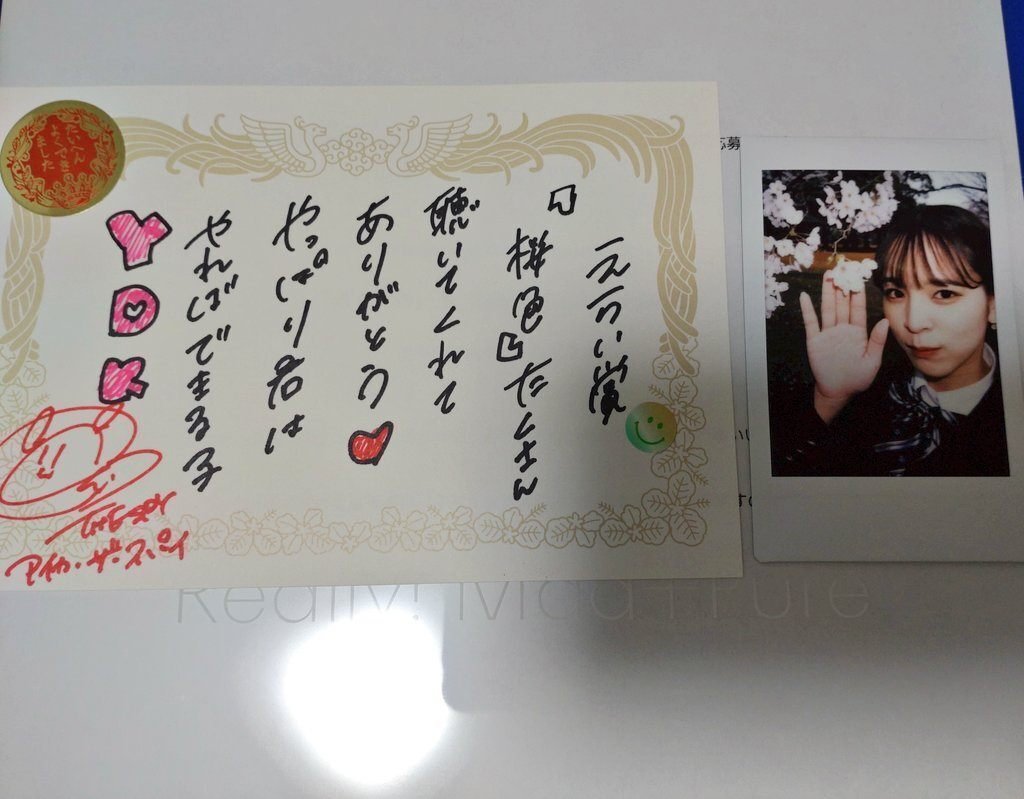 えらい賞
「桜色」たくさん
聴いてくれて
ありがとう
やっぱり君は
やればできる子
YDK
THE SPY
アイカ・ザ・スパイ
たいへん
よくでき
ました
Really! Mad+Pure